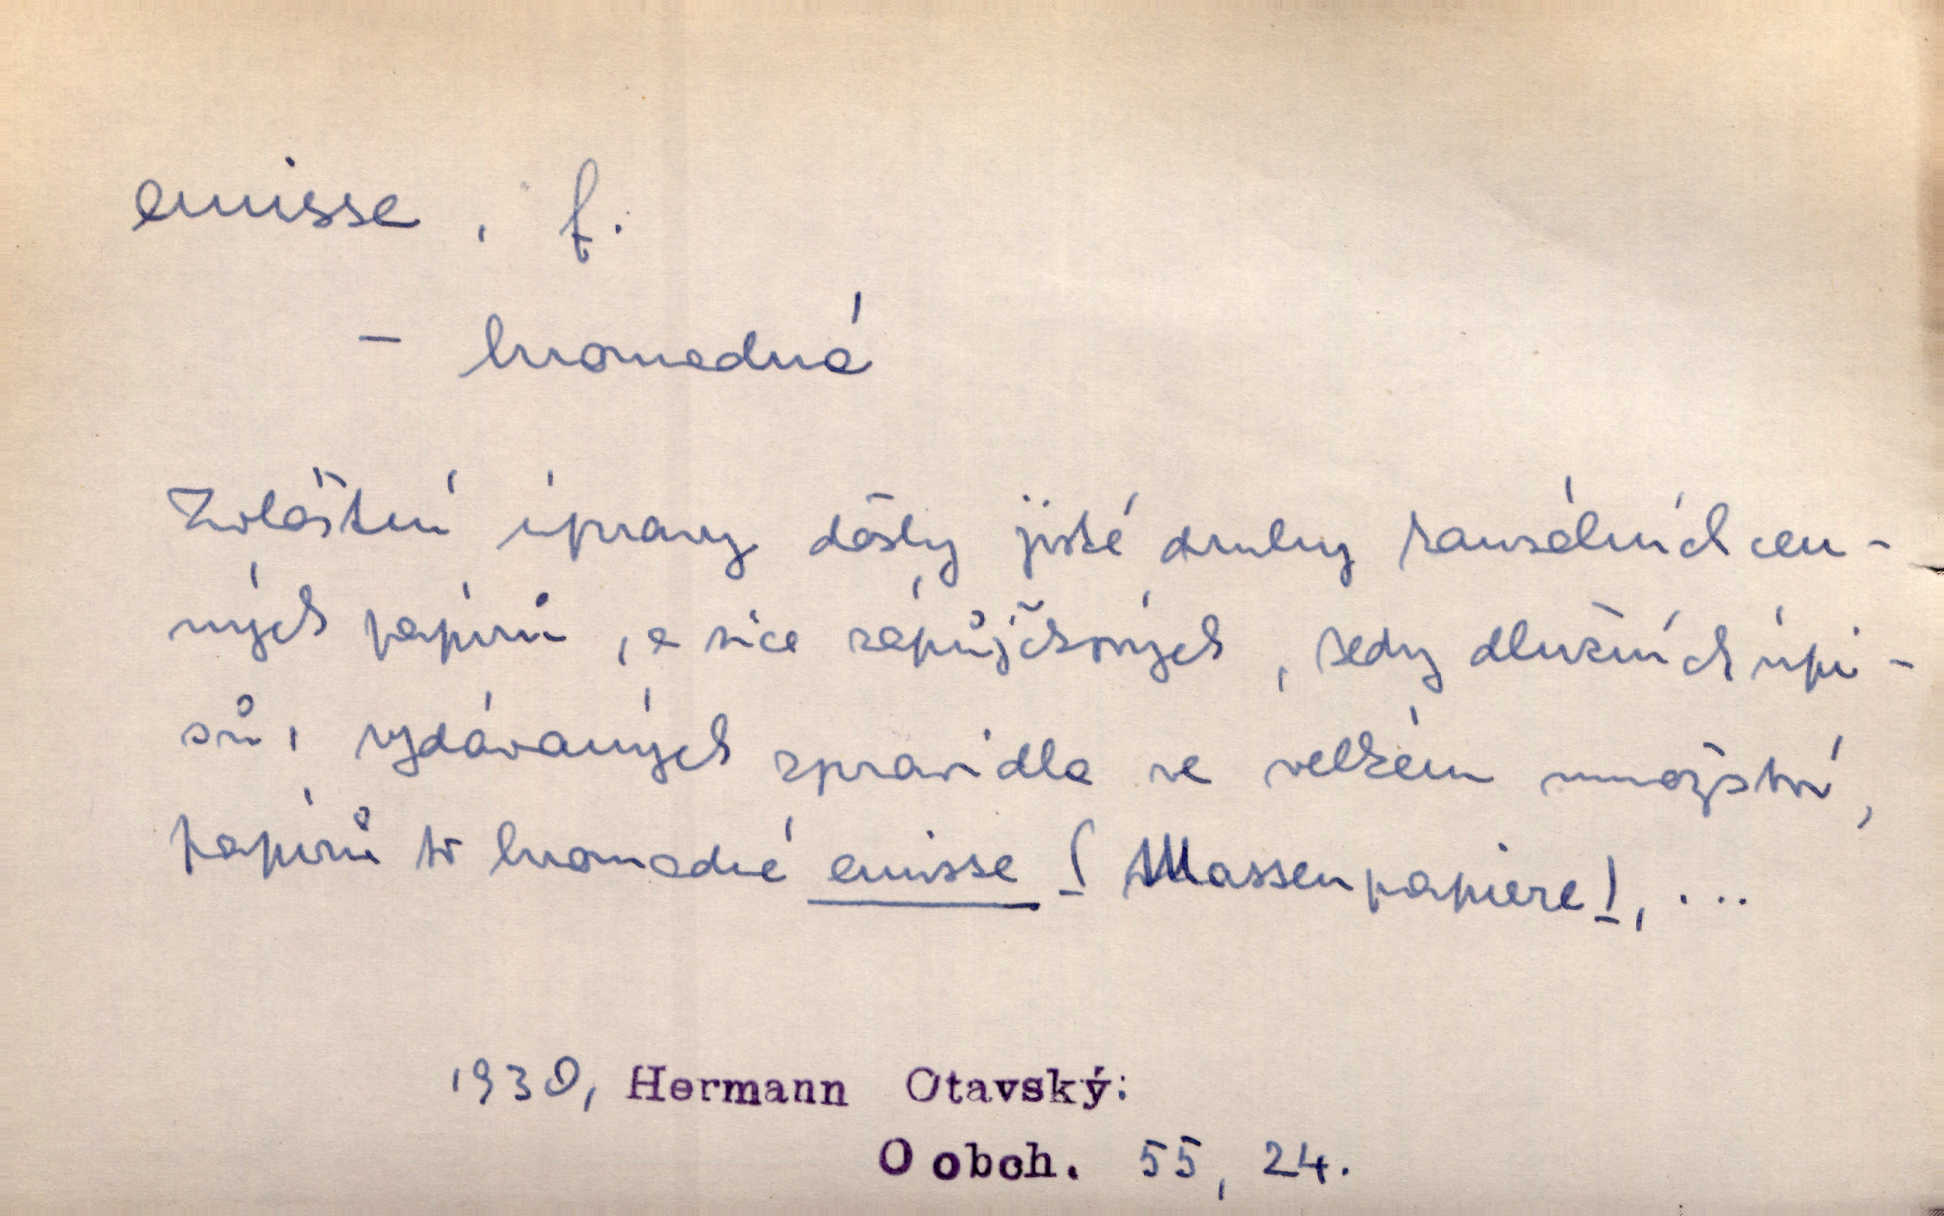 emisse, f.
– hromadná
Zvláštní úpravy došly jisté druhy kausálních cen-
ných papírů, a sice zápůjčkových, tedy dlužních úpi-
sů, vydávaných zpravidla ve velkém množství,
papírů to hromadné emisse (Massenpapiere), ...
1930, Hermann Otavský:
O obch. 55, 24.